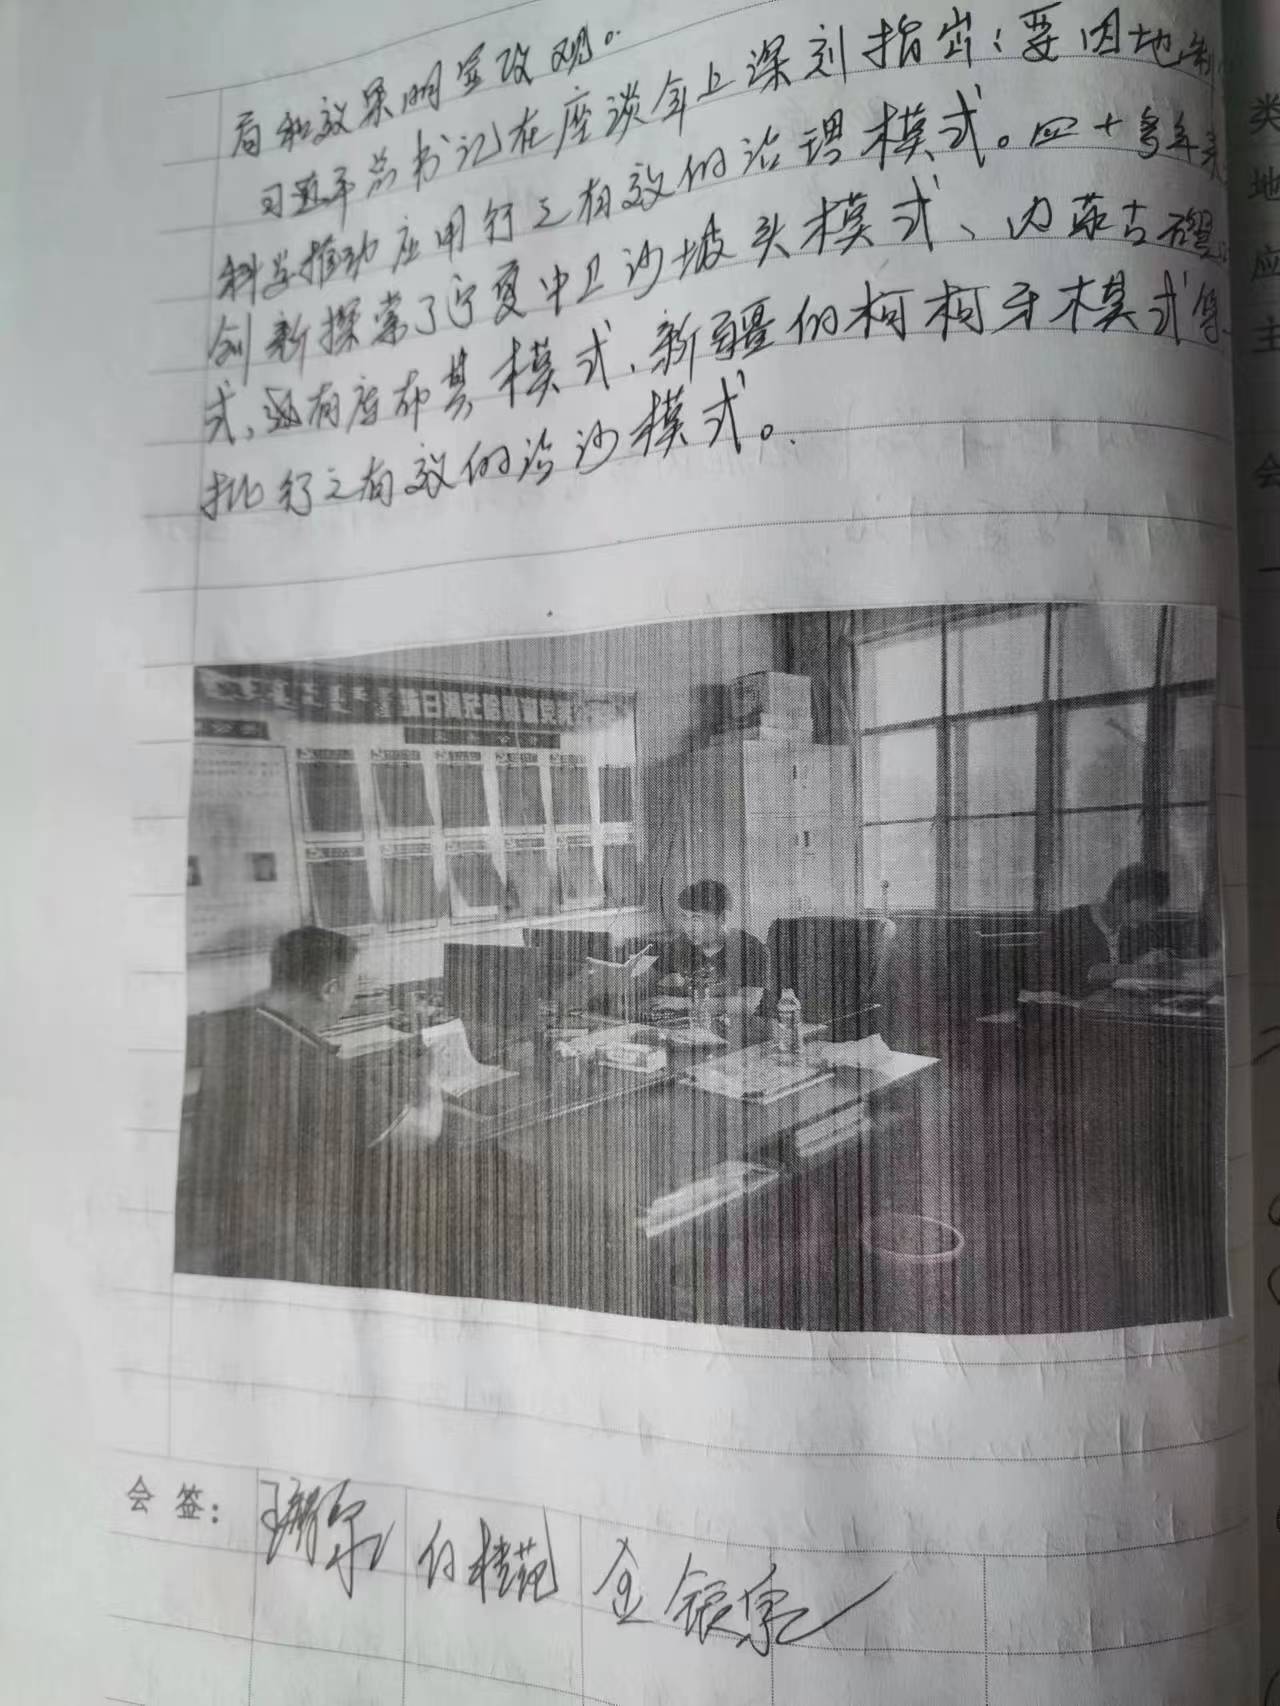 局和效果明显改观。
习近平总书记在座谈会上深刻指出：要因地制
科学推动应用行之有效的治理模式。四十多年来
创新探索了宁夏中卫沙坡头模式、内蒙古磴
式、还有库布其模式、新疆的柯柯牙模式等一
批行之有效的治沙模式。
类
地
应
主
会
会 签：
白桂苑 金银泉